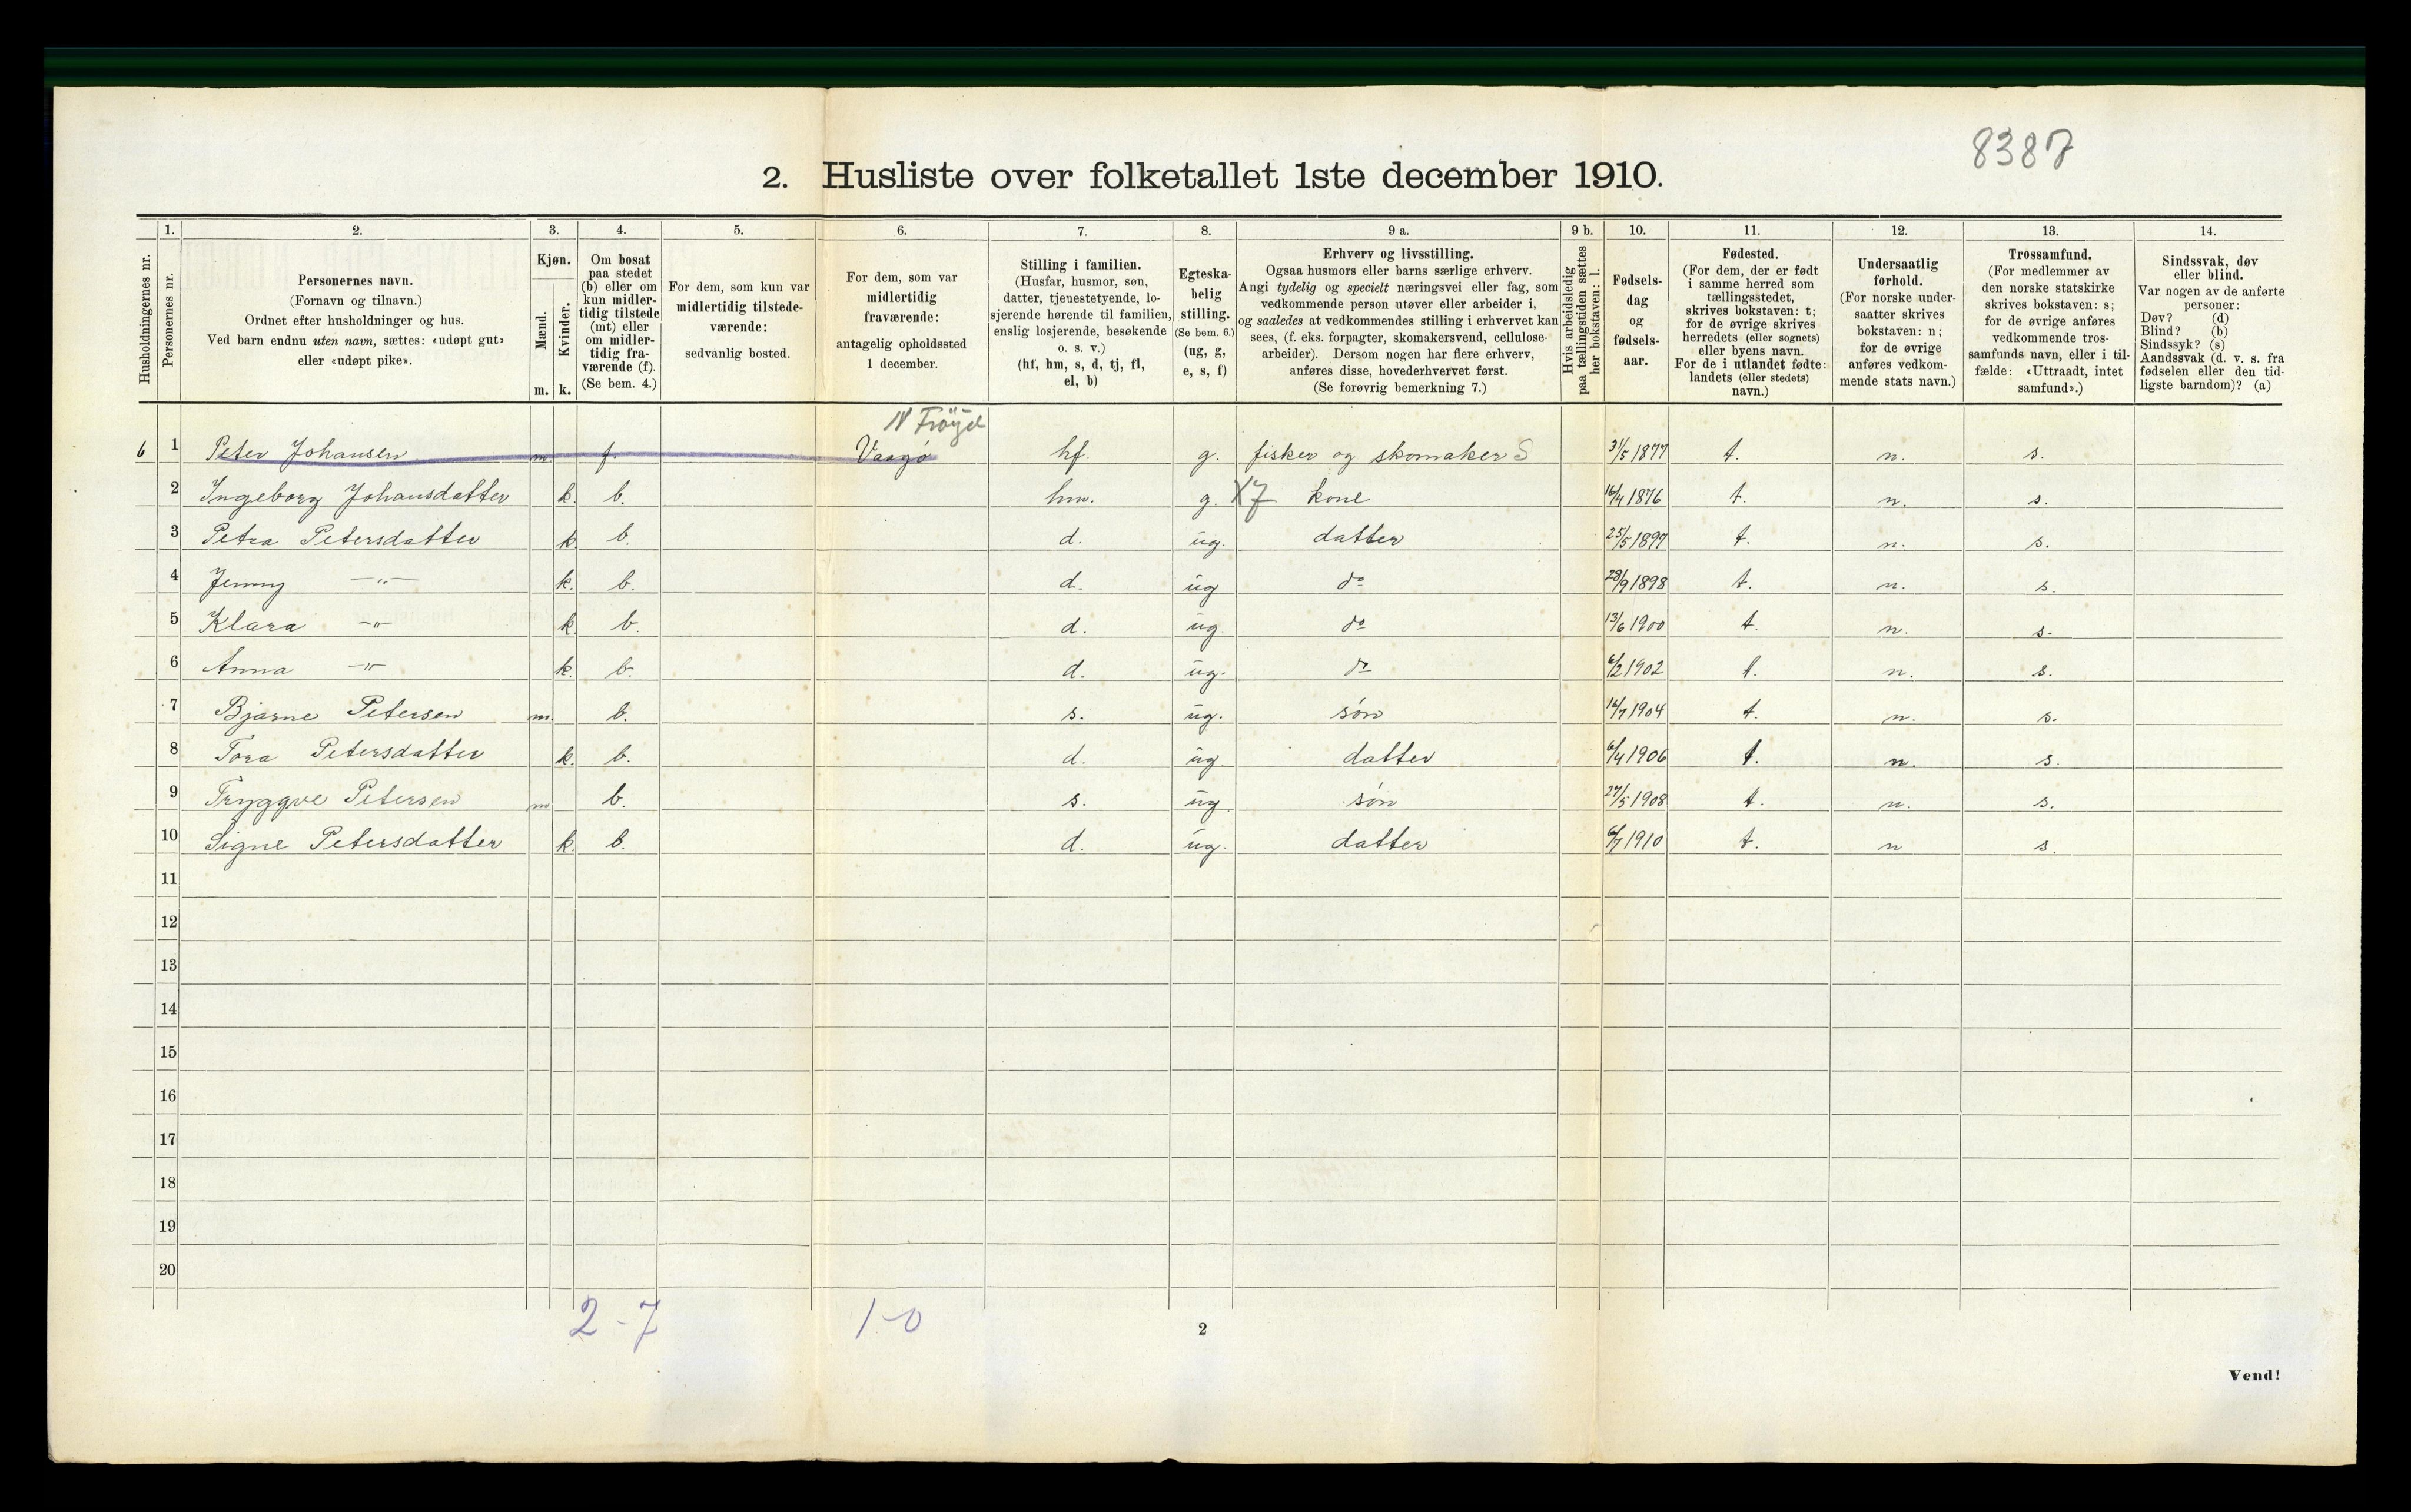 8387
2. Husliste over folketallet 1ste december 1910.
1. 2. 3. 4. 5. 6. 7. 8. 9 a. 9 b. 10. 11. 12. 13. 14.
Husholdningernes nr.
Personernes nr.
Personernes navn.
(Fornavn og tilnavn.)
Ordnet efter husholdninger og hus.
Ved barn endnu uten navn, sættes: «udøpt gut»
eller «udøpt pike».
Kjøn.
Mænd.
Kvinder.
m. k.
Om bosat
paa stedet
(b) eller om
kun midler-
tidig tilstede
(mt) eller
om midler-
tidig fra-
værende (f).
(Se bem. 4.)
For dem, som kun var
midlertidig tilstede-
værende:
sedvanlig bosted.
For dem, som var
midlertidig
fraværende:
antagelig opholdssted
1 december.
Stilling i familien.
(Husfar, husmor, søn,
datter, tjenestetyende, lo-
sjerende hørende til familien,
enslig losjerende, besøkende
o. s. v.)
(hf, hm, s, d, tj, fl,
el, b)
Egteska-
belig
stilling.
(Se bem. 6.)
(ug, g,
e, s, f)
Erhverv og livsstilling.
Ogsaa husmors eller barns særlige erhverv.
Angi tydelig og specielt næringsvei eller fag, som
vedkommende person utøver eller arbeider i,
og saaledes at vedkommendes stilling i erhvervet kan
sees, (f. eks. forpagter, skomakersvend, cellulose-
arbeider). Dersom nogen har flere erhverv,
anføres disse, hovederhvervet først.
(Se forøvrig bemerkning 7.)
Hvis arbeidsledig
paa tællingstiden sættes
her bokstaven: l.
Fødsels-
dag
og
fødsels-
aar.
Fødested.
(For dem, der er født
i samme herred som
tællingsstedet,
skrives bokstaven: t;
for de øvrige skrives
herredets (eller sognets)
eller byens navn.
For de i utlandet fødte:
landets (eller stedets)
navn.)
Undersaatlig
forhold.
(For norske under-
saatter skrives
bokstaven: n;
for de øvrige
anføres vedkom-
mende stats navn.)
Trossamfund.
(For medlemmer av
den norske statskirke
skrives bokstaven: s;
for de øvrige anføres
vedkommende tros-
samfunds navn, eller i til-
fælde: «Uttraadt, intet
samfund».)
Sindssvak, døv
eller blind.
Var nogen av de anførte
personer:
Døv? (d)
Blind? (b)
Sindssyk? (s)
Aandssvak (d. v. s. fra
fødselen eller den tid-
ligste barndom)? (a)
N Fröya
6 1 Peter Johansen m. f. Vaagø hf. g. fisker og skomaker S 31/5 1877 t. n. s.
2 Ingeborg Johansdatter k. b. hm. g. X7 kone 16/4 1876 t. n. s.
3 Petra Petersdatter k. b. d. ug. datter 25/5 1897 t. n. s.
4 Jenny —"— k. b. d. ug do 28/9 1898 t. n. s.
5 Klara —"— k. b. d. ug. do 13/6 1900 t. n. s.
6 Anna —"— k. b. d. ug. do 6/2 1902 t. n. s.
7 Bjarne Petersen m. b. s. ug. søn 16/7 1904 t. n. s.
8 Tora Petersdatter k. b. d. ug datter 6/4 1906 t. n. s.
9 Tryggve Petersen m. b. s. ug søn 27/5 1908 t. n. s.
10 Signe Petersdatter k. b. d. ug. datter 6/7 1910 t. n s.
11
12
13
14
15
16
17
18
19
20
2 - 7 1-0
2
Vend!